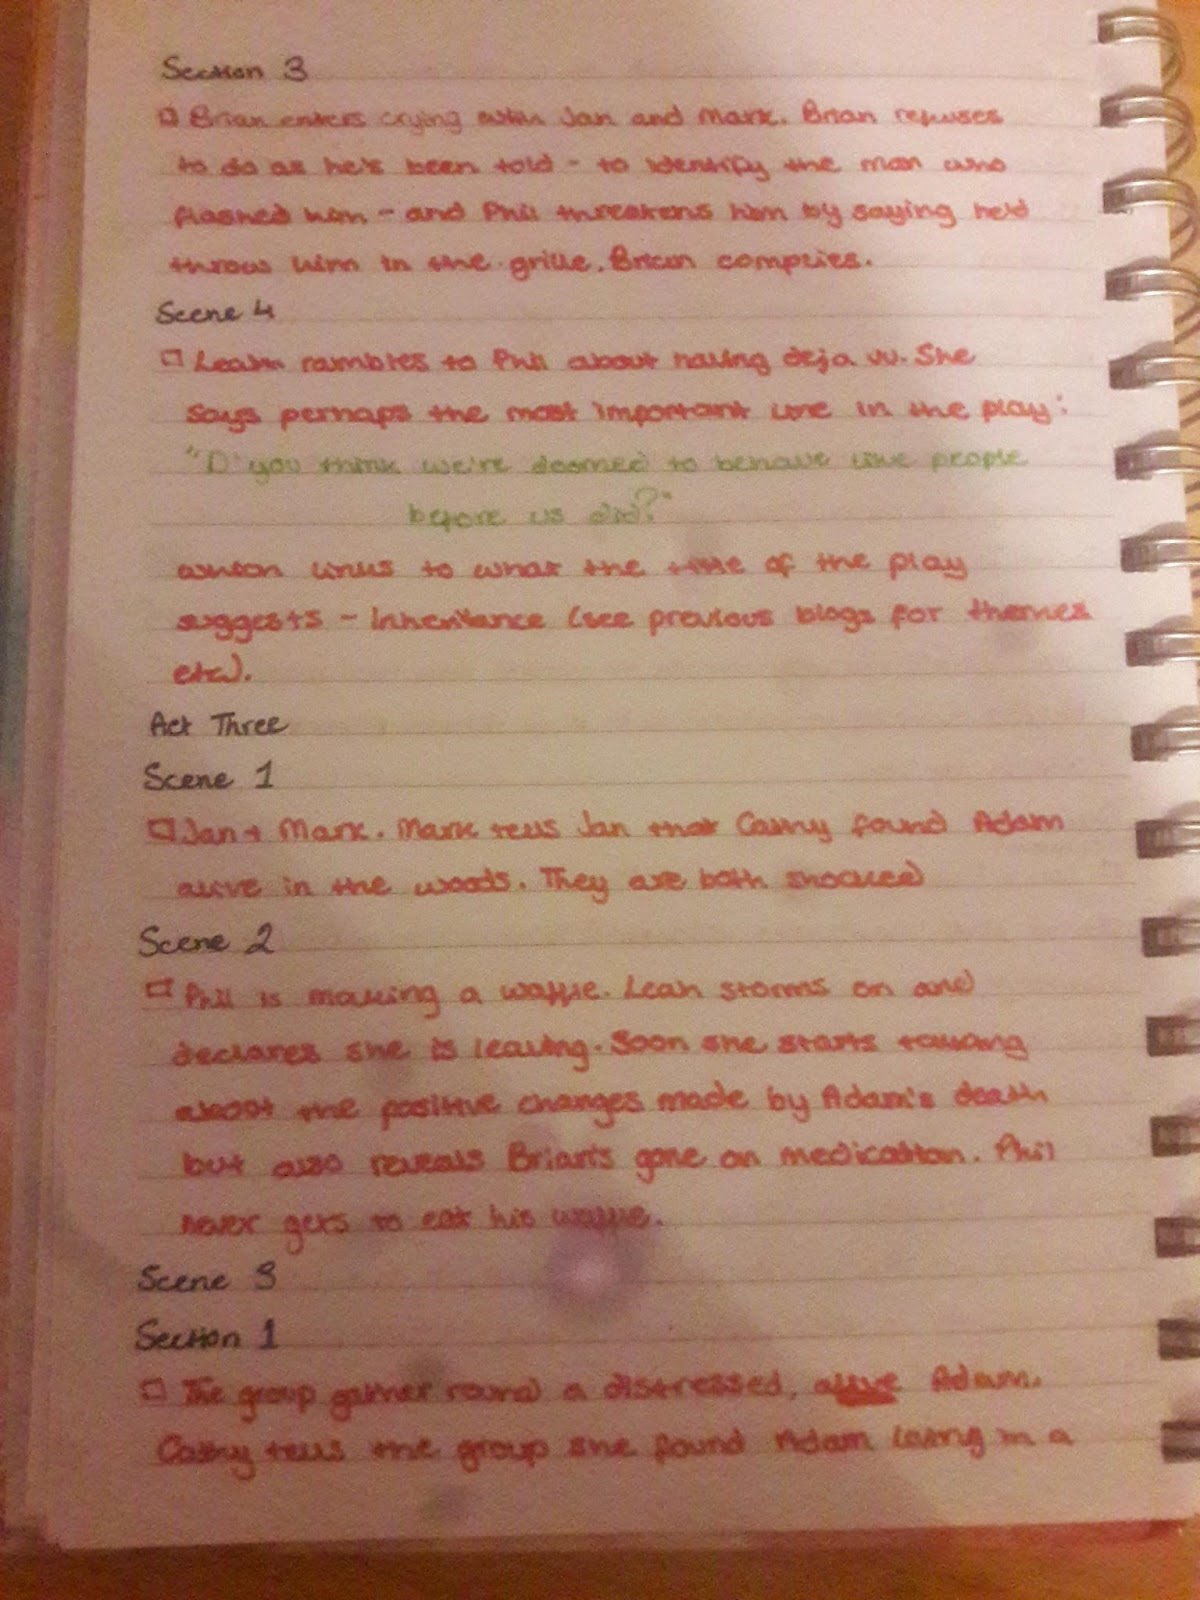 Section 3
Brian enters crying with Jan and Mark. Brian refuses
to do as he's been told - to identify the man who
flashed him - and Phil threatens him by saying he'd
throw him in the grille. Brian complies.
Scene 4
Leah rambles to Phil about having deja vu. She
says perhaps the most important line in the play:
"D'you think we're doomed to behave like people
before us did?"
which links to what the title of the play
suggests - Inheritance (see previous blogs for themes
etc).
Act Three
Scene 1
Jan + Mark. Mark tells Jan that Cathy found Adam
alive in the woods. They are both shocked
Scene 2
Phil is making a waffle. Leah storms on and
declares she is leaving. Soon she starts talking
about the positive changes made by Adam's death
but also reveals Brian's gone on medication. Phil
never gets to eat his waffle.
Scene 3
Section 1
The group gather round a distressed, alive Adam.
Cathy tells the group she found Adam living in a